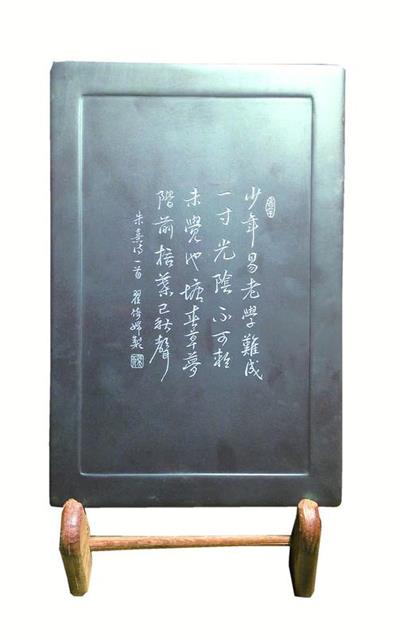 少年易老學難成
一寸光陰不可輕
未覺池塘春草夢
階前梧葉已秋聲
朱熹诗一首 翟 製